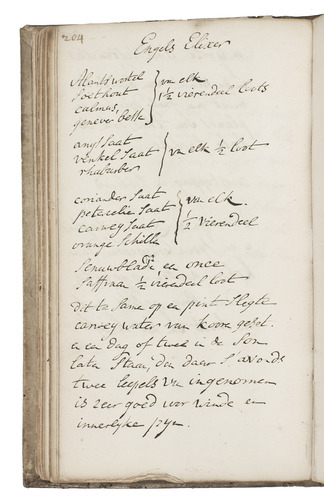 204
Engels Elixer
Alantswortel
Soethout
calmus,
genever besse
van elk
1½ vierendeel loots
anijs Saat
venkel Saat
rhubarber
van elk ½ loot
coriander Saat
petercelie Saat
carwey Saat
orange Schille
van elk
½ vierendeel
Senuwblade een once
Saffraan ½ vierendeel loot
dit te Same op een pint Slegte
carwey water van koorn geset.
en een dag of twee in de Son
laten Staan, dan daer S'avonds
twee leepels van ingenomen
is zeer goed voor winde en
innerlyke pyn.